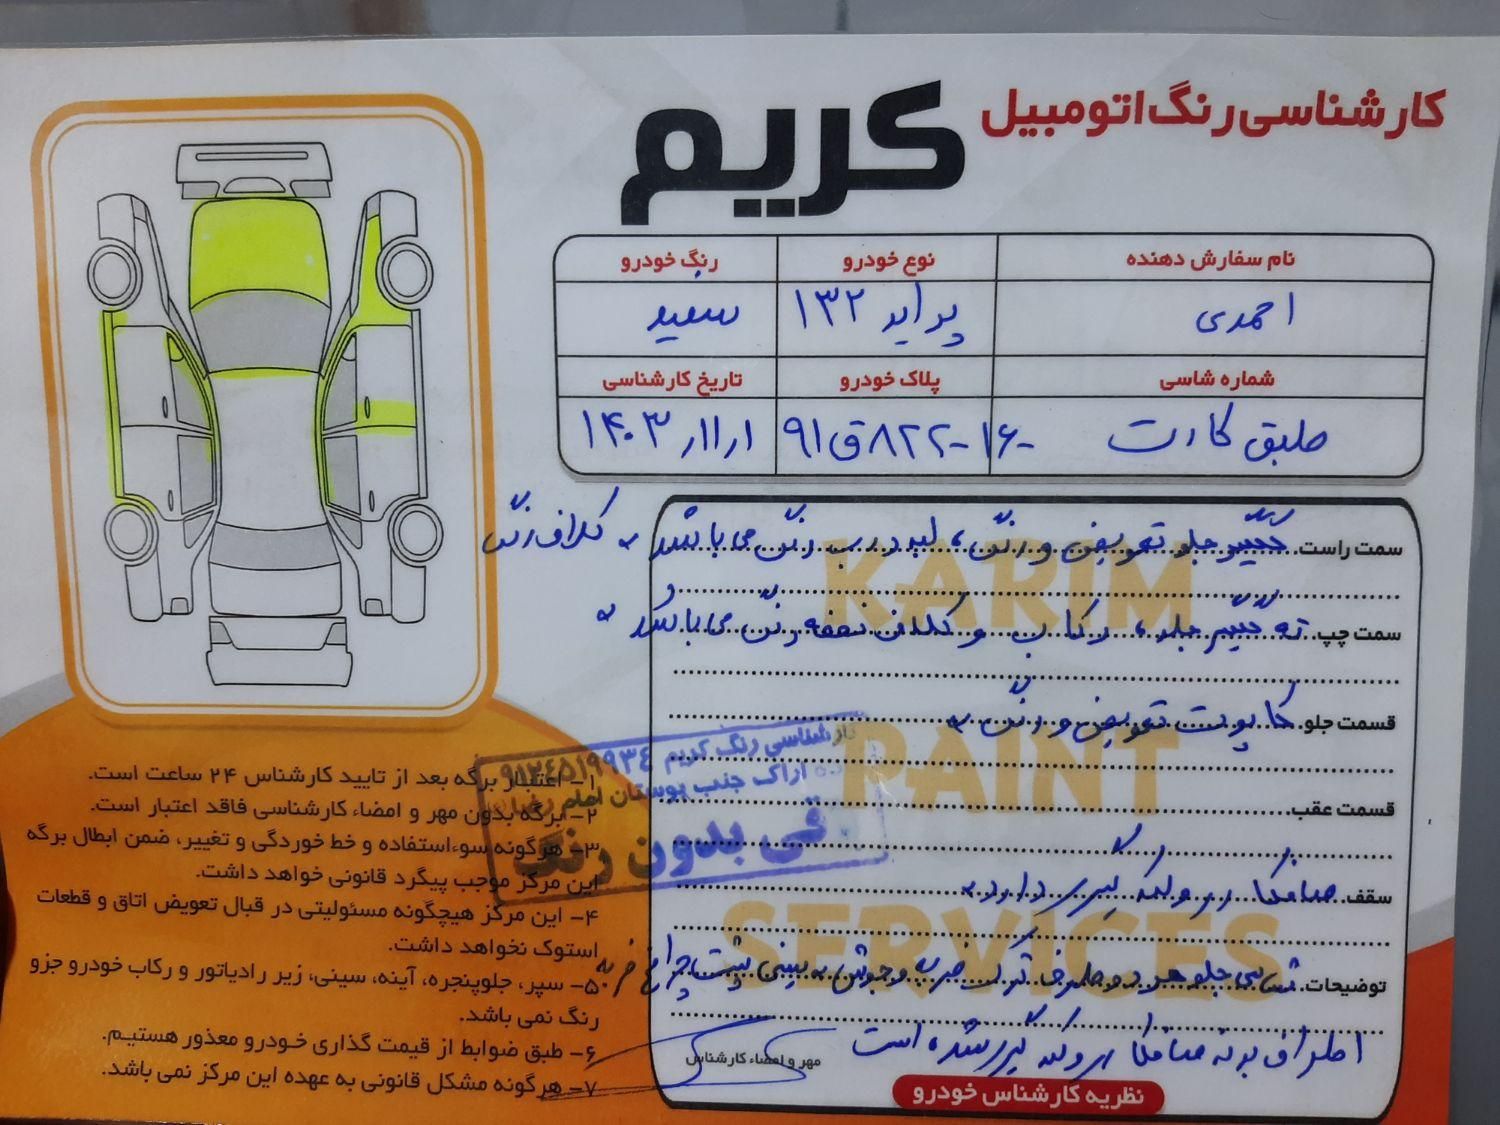 کارشناسی رنگ اتومبیل
کریم
نام سفارش دهنده
نوع خودرو
رنگ خودرو
احمدی
پراید ۱۳۲
سفید
شماره شاسی
پلاک خودرو
تاریخ کارشناسی
طبق کارت
۱۶-۸۲۲ق۹۱
۱۴۰۳/۱۱/۱
سمت راست: گلگیر جلو تعویض و رنگ، لبه درب رنگ می باشد کلاف رنگ
سمت چپ: ته گلگیر جلو، رکاب و کلاف نصفه رنگ می باشد
قسمت جلو: کاپوت تعویض و رنگ
قسمت عقب:
سقف: صافکاری و لکه گیری دارد
توضیحات: شاسی جلو هر دو طرف ترک ضربه و جوش سینی پشت چراغ ضربه
اطراف بدنه صافکاری و لکه گیری شده است
KARIM
PAINT
SERVICES
کارشناسی رنگ کریم ۰۹۱۲۴۵۱۹۹۳۴
اراک جنب بوستان امام رضا
فنی بدون رنگ
۱- اعتبار برگه بعد از تایید کارشناس ۲۴ ساعت است.
۲- برگه بدون مهر و امضاء کارشناسی فاقد اعتبار است.
۳- هرگونه سوءاستفاده و خط خوردگی و تغییر، ضمن ابطال برگه
این مرکز موجب پیگرد قانونی خواهد داشت.
۴- این مرکز هیچگونه مسئولیتی در قبال تعویض اتاق و قطعات
استوک نخواهد داشت.
۵- سپر، جلوپنجره، آینه، سینی، زیر رادیاتور و رکاب خودرو جزو
رنگ نمی باشد.
۶- طبق ضوابط از قیمت گذاری خودرو معذور هستیم.
۷- هرگونه مشکل قانونی به عهده این مرکز نمی باشد.
مهر و امضاء کارشناس
نظریه کارشناس خودرو